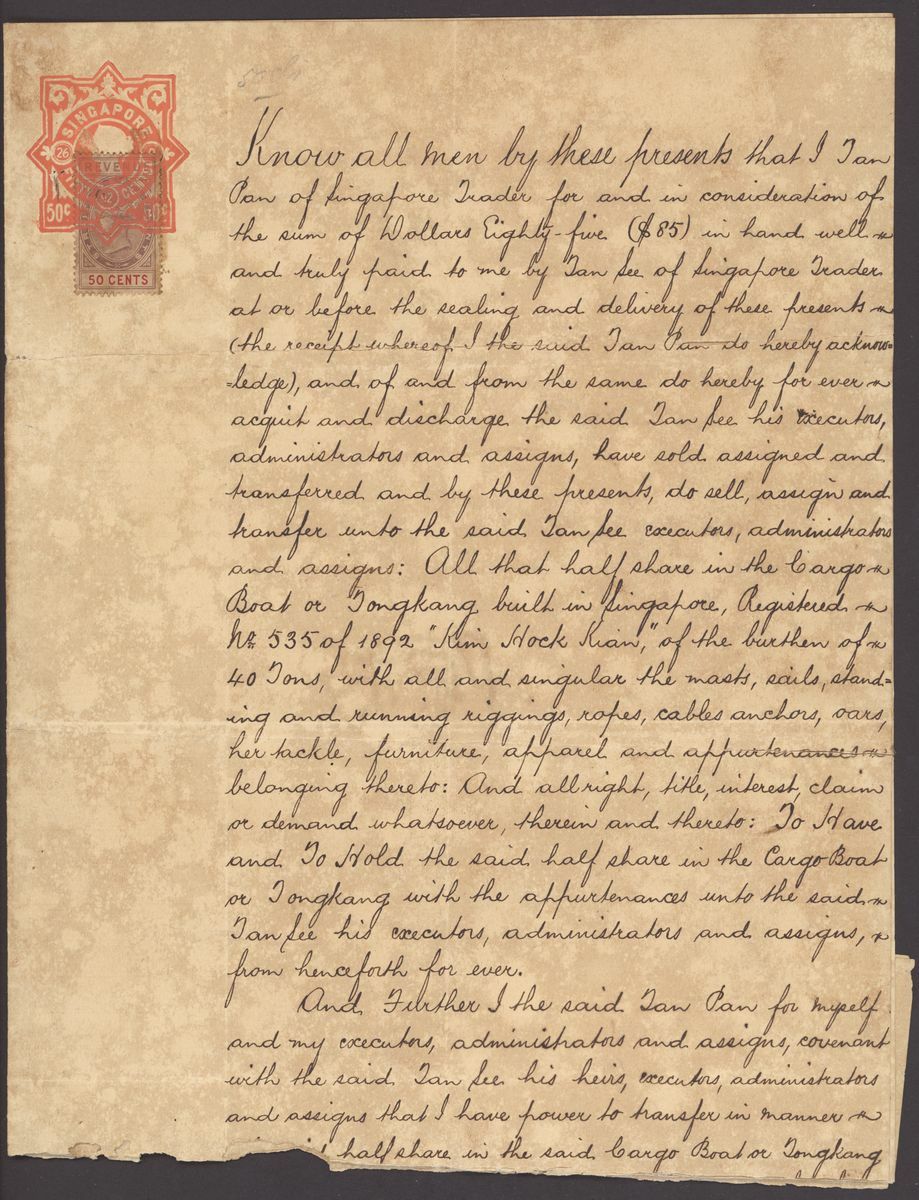 SINGAPORE
26
FIFTY CENTS
50c 50c
REVENUE
50 CENTS
Know all men by these presents that I Tan
Pan of Singapore Trader for and in consideration of
the sum of Dollars Eighty-five ($85) in hand well
and truly paid to me by Tan See of Singapore Trader
at or before the sealing and delivery of these presents
(the receipt whereof I the said Tan Pan do hereby acknow=
=ledge), and of and from the same do hereby for ever
acquit and discharge the said Tan See his executors,
administrators and assigns, have sold assigned and
transferred and by these presents, do sell, assign and
transfer unto the said Tan See executors, administrators
and assigns: All that half share in the Cargo
Boat or Tongkang built in Singapore, Registered
No 535 of 1892 "Kim Hock Kian," of the burthen of
40 Tons, with all and singular the masts, sails, stand=
ing and running riggings, ropes, cables anchors, oars,
her tackle, furniture, apparel and appurtenances
belonging thereto: And all right, title, interest, claim
or demand whatsoever, therein and thereto: To Have
and To Hold the said half share in the Cargo Boat
or Tongkang with the appurtenances unto the said
Tan See his executors, administrators and assigns,
from henceforth for ever.
And Further I the said Tan Pan for myself
and my executors, administrators and assigns, covenant
with the said Tan See his heirs, executors, administrators
and assigns that I have power to transfer in manner
half share in the said Cargo Boat or Tongkang